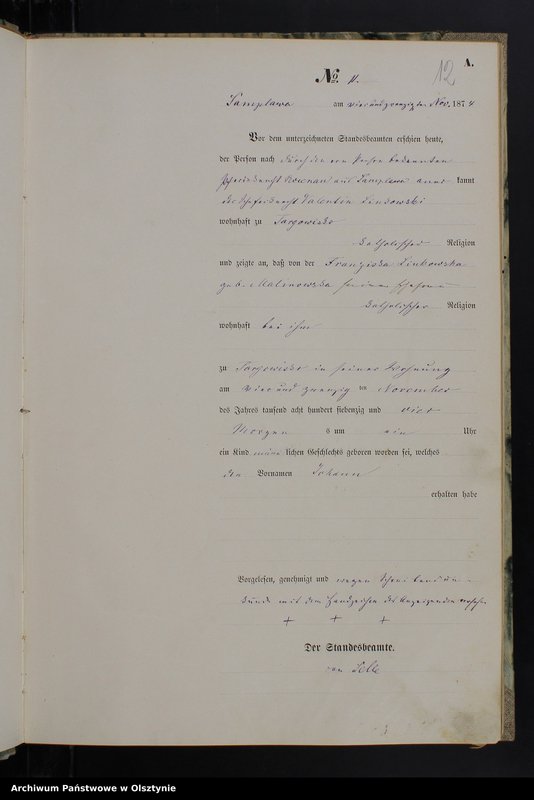 12
A.
№. 11.
Samplawa am vierundzwanzigsten Nov. 1874
Vor dem unterzeichneten Standesbeamten erschien heute,
der Person nach durch den von Person bekannten
aus Samplawa anerkannt
der Valentin Linkowski
wohnhaft zu Targowisko
katholischer Religion
und zeigte an, daß von der Franziska Linkowska
geb. Malinowska seiner Ehefrau
katholischer Religion
wohnhaft bei ihm
zu Targowisko in seiner Wohnung
am vier und zwanzig ten November
des Jahres tausend acht hundert siebenzig und vier
Morgen s um ein Uhr
ein Kind männlichen Geschlechts geboren worden sei, welches
den Vornamen Johann
erhalten habe
Vorgelesen, genehmigt und wegen Schreibensun-
kunde mit dem Handzeichen des Anzeigenden versehen
+ + +
Der Standesbeamte.
von
Archiwum Państwowe w Olsztynie